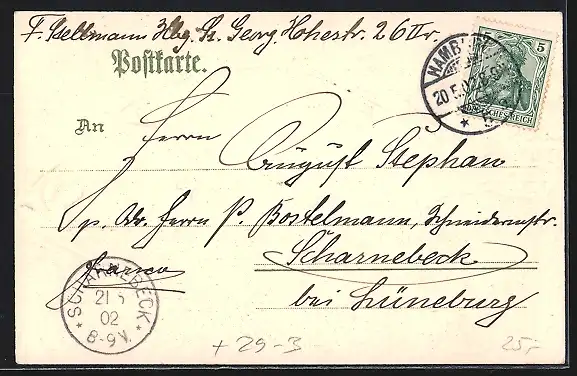 F. Sellmann Hbg. St. Georg. Hohestr. 26 IIr.
Postkarte.
HAMBURG
20.5.02
5
DEUTSCHES REICH
An
Herrn
August Stephan
p. Adr. Herrn P. Bostelmann, Schneidermstr.
Scharnebeck
Franco
bei Lüneburg
SCHARNEBECK
21 5
02
8-9 V.
+ 29-3
25.-